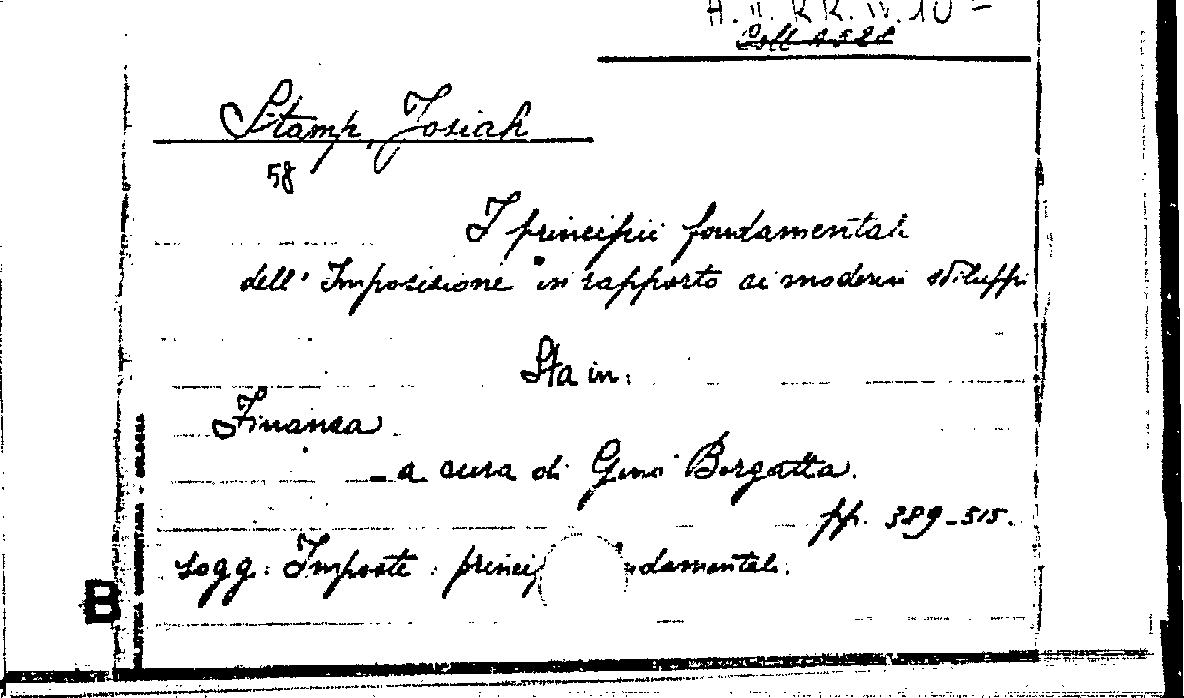 A. II. RR. IV. 10
Coll 1528
Stamp, Josiah
58
I principii fondamentali
dell' Imposizione in rapporto ai moderni sviluppi
Sta in:
Finanza
- a cura di Gino Borgatta.
pp. 389-515.
sogg: Imposte: princi damentali.
BIBLIOTECA - BOLOGNA
B